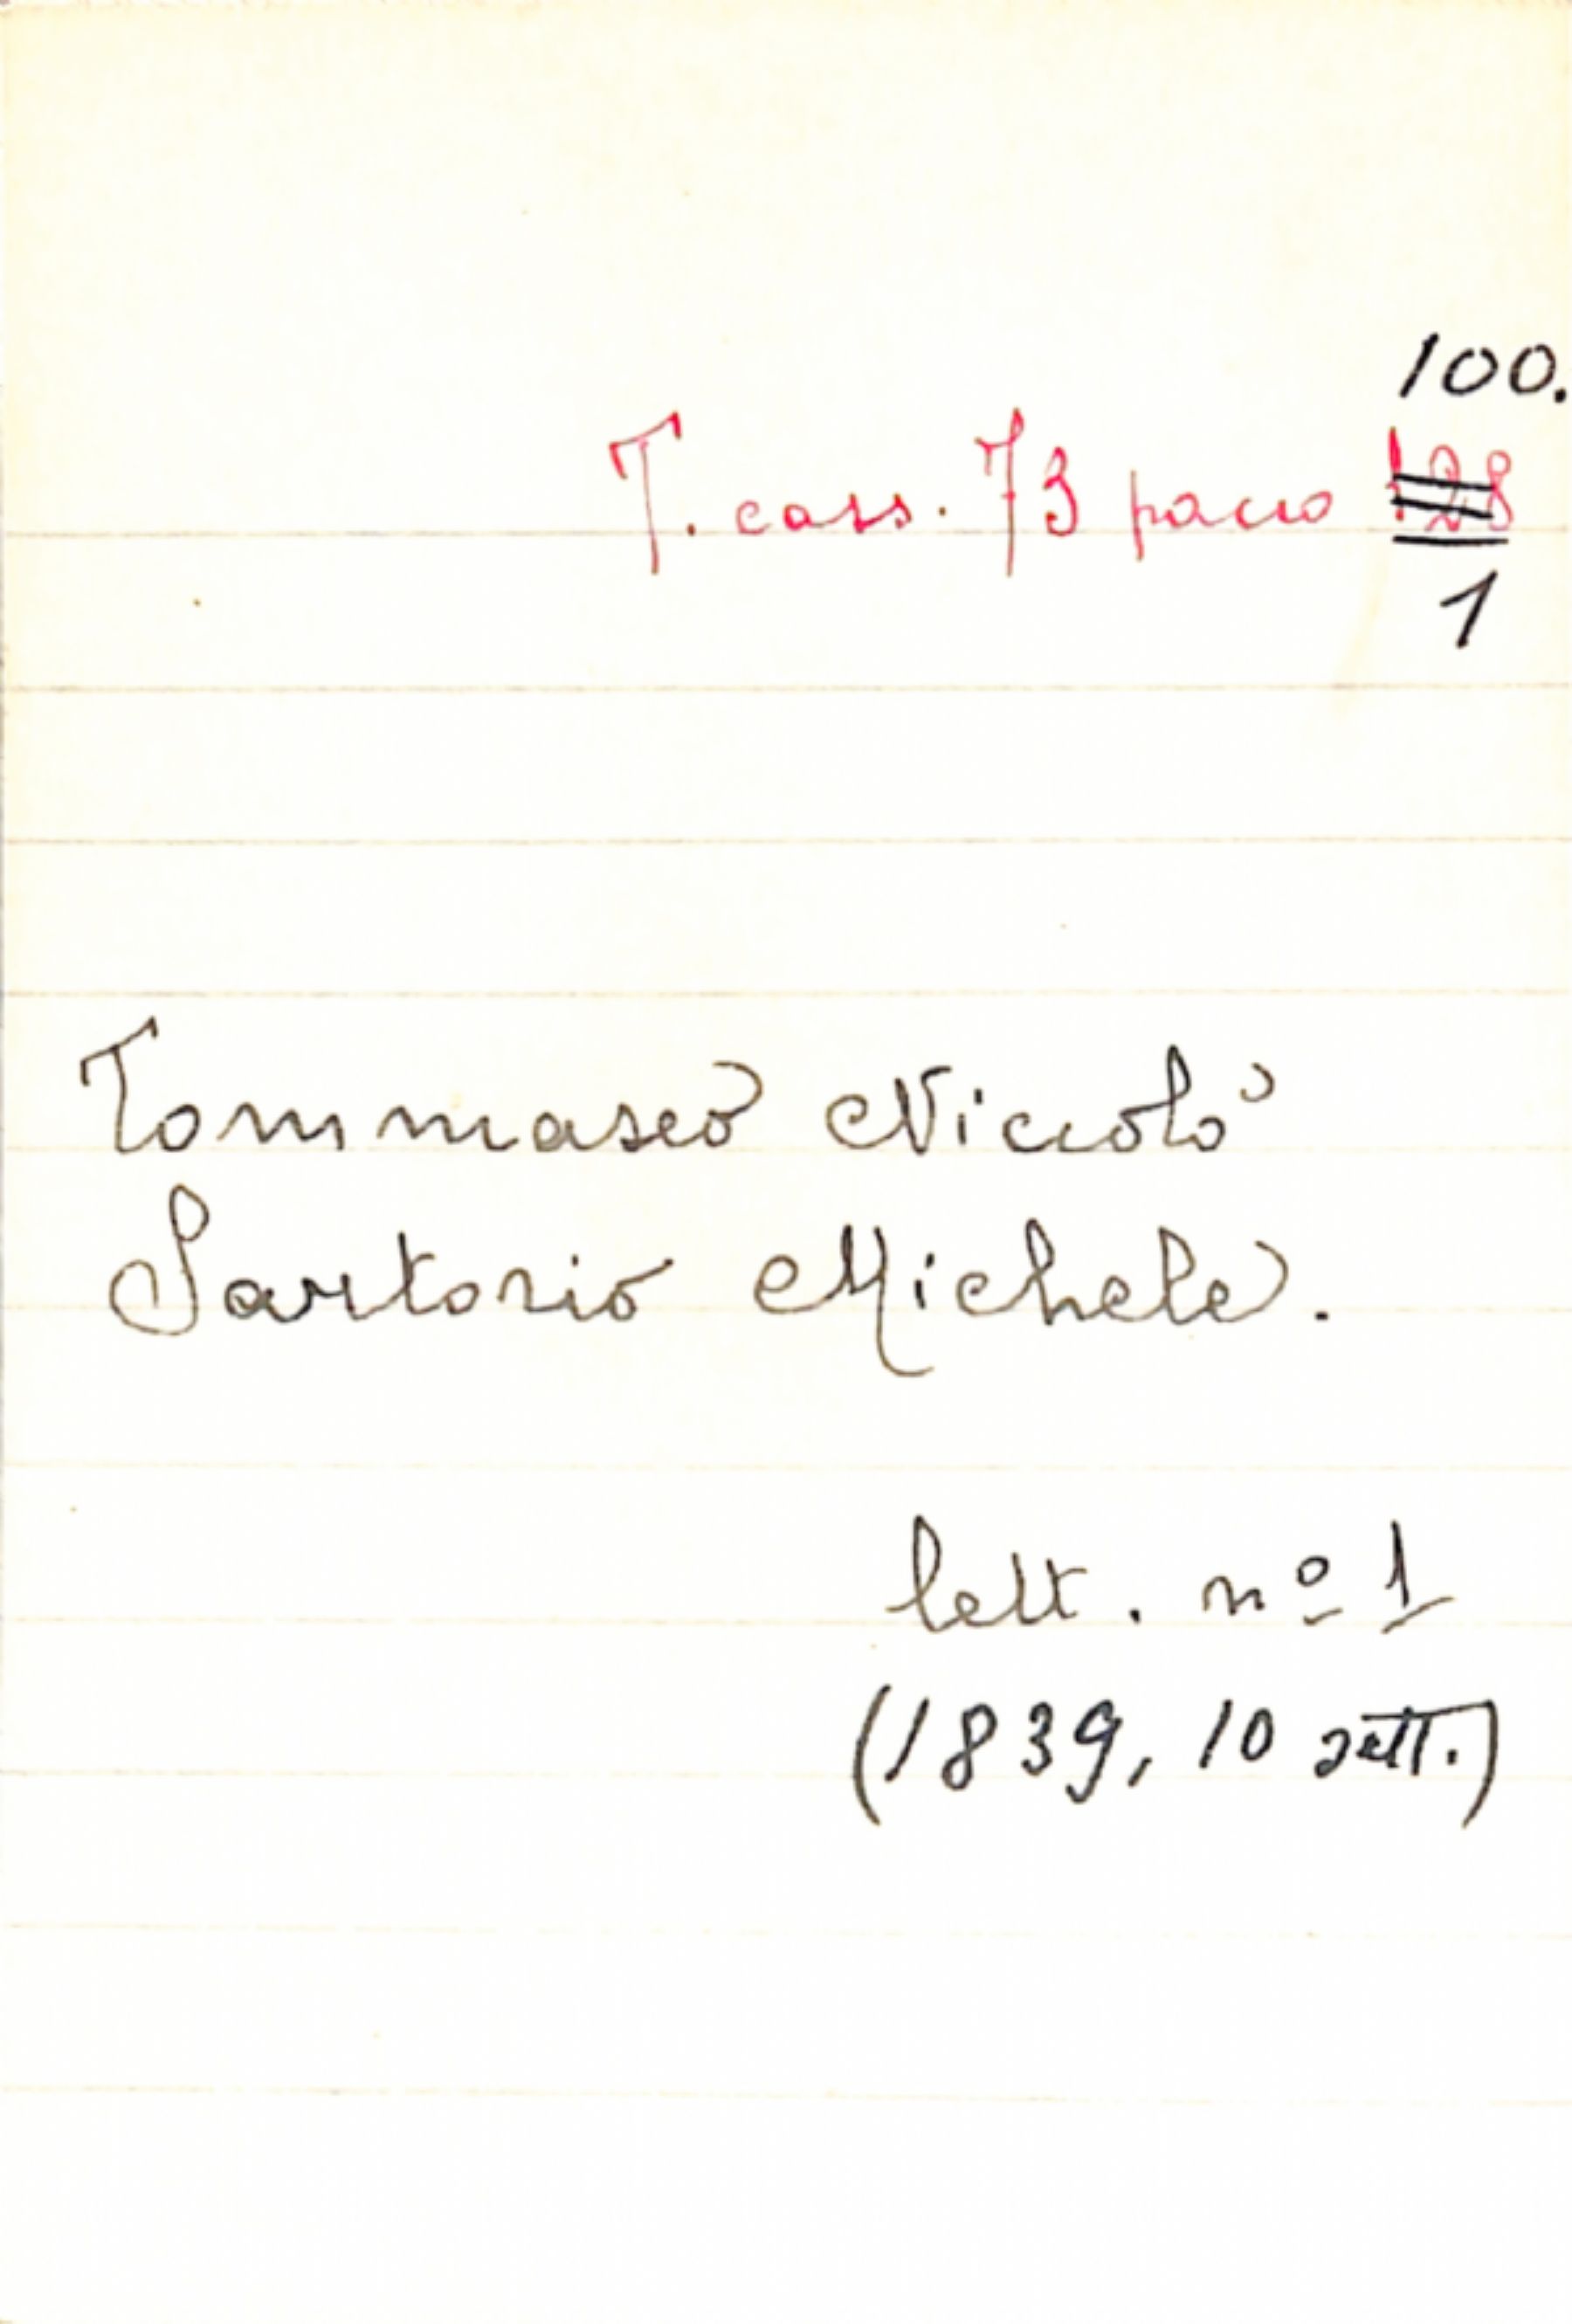 100.
T. cass. 73 pacco 128
1
Tommaseo Niccolò
Sartorio Michele.
lett. nº 1
(1839, 10 sett.)